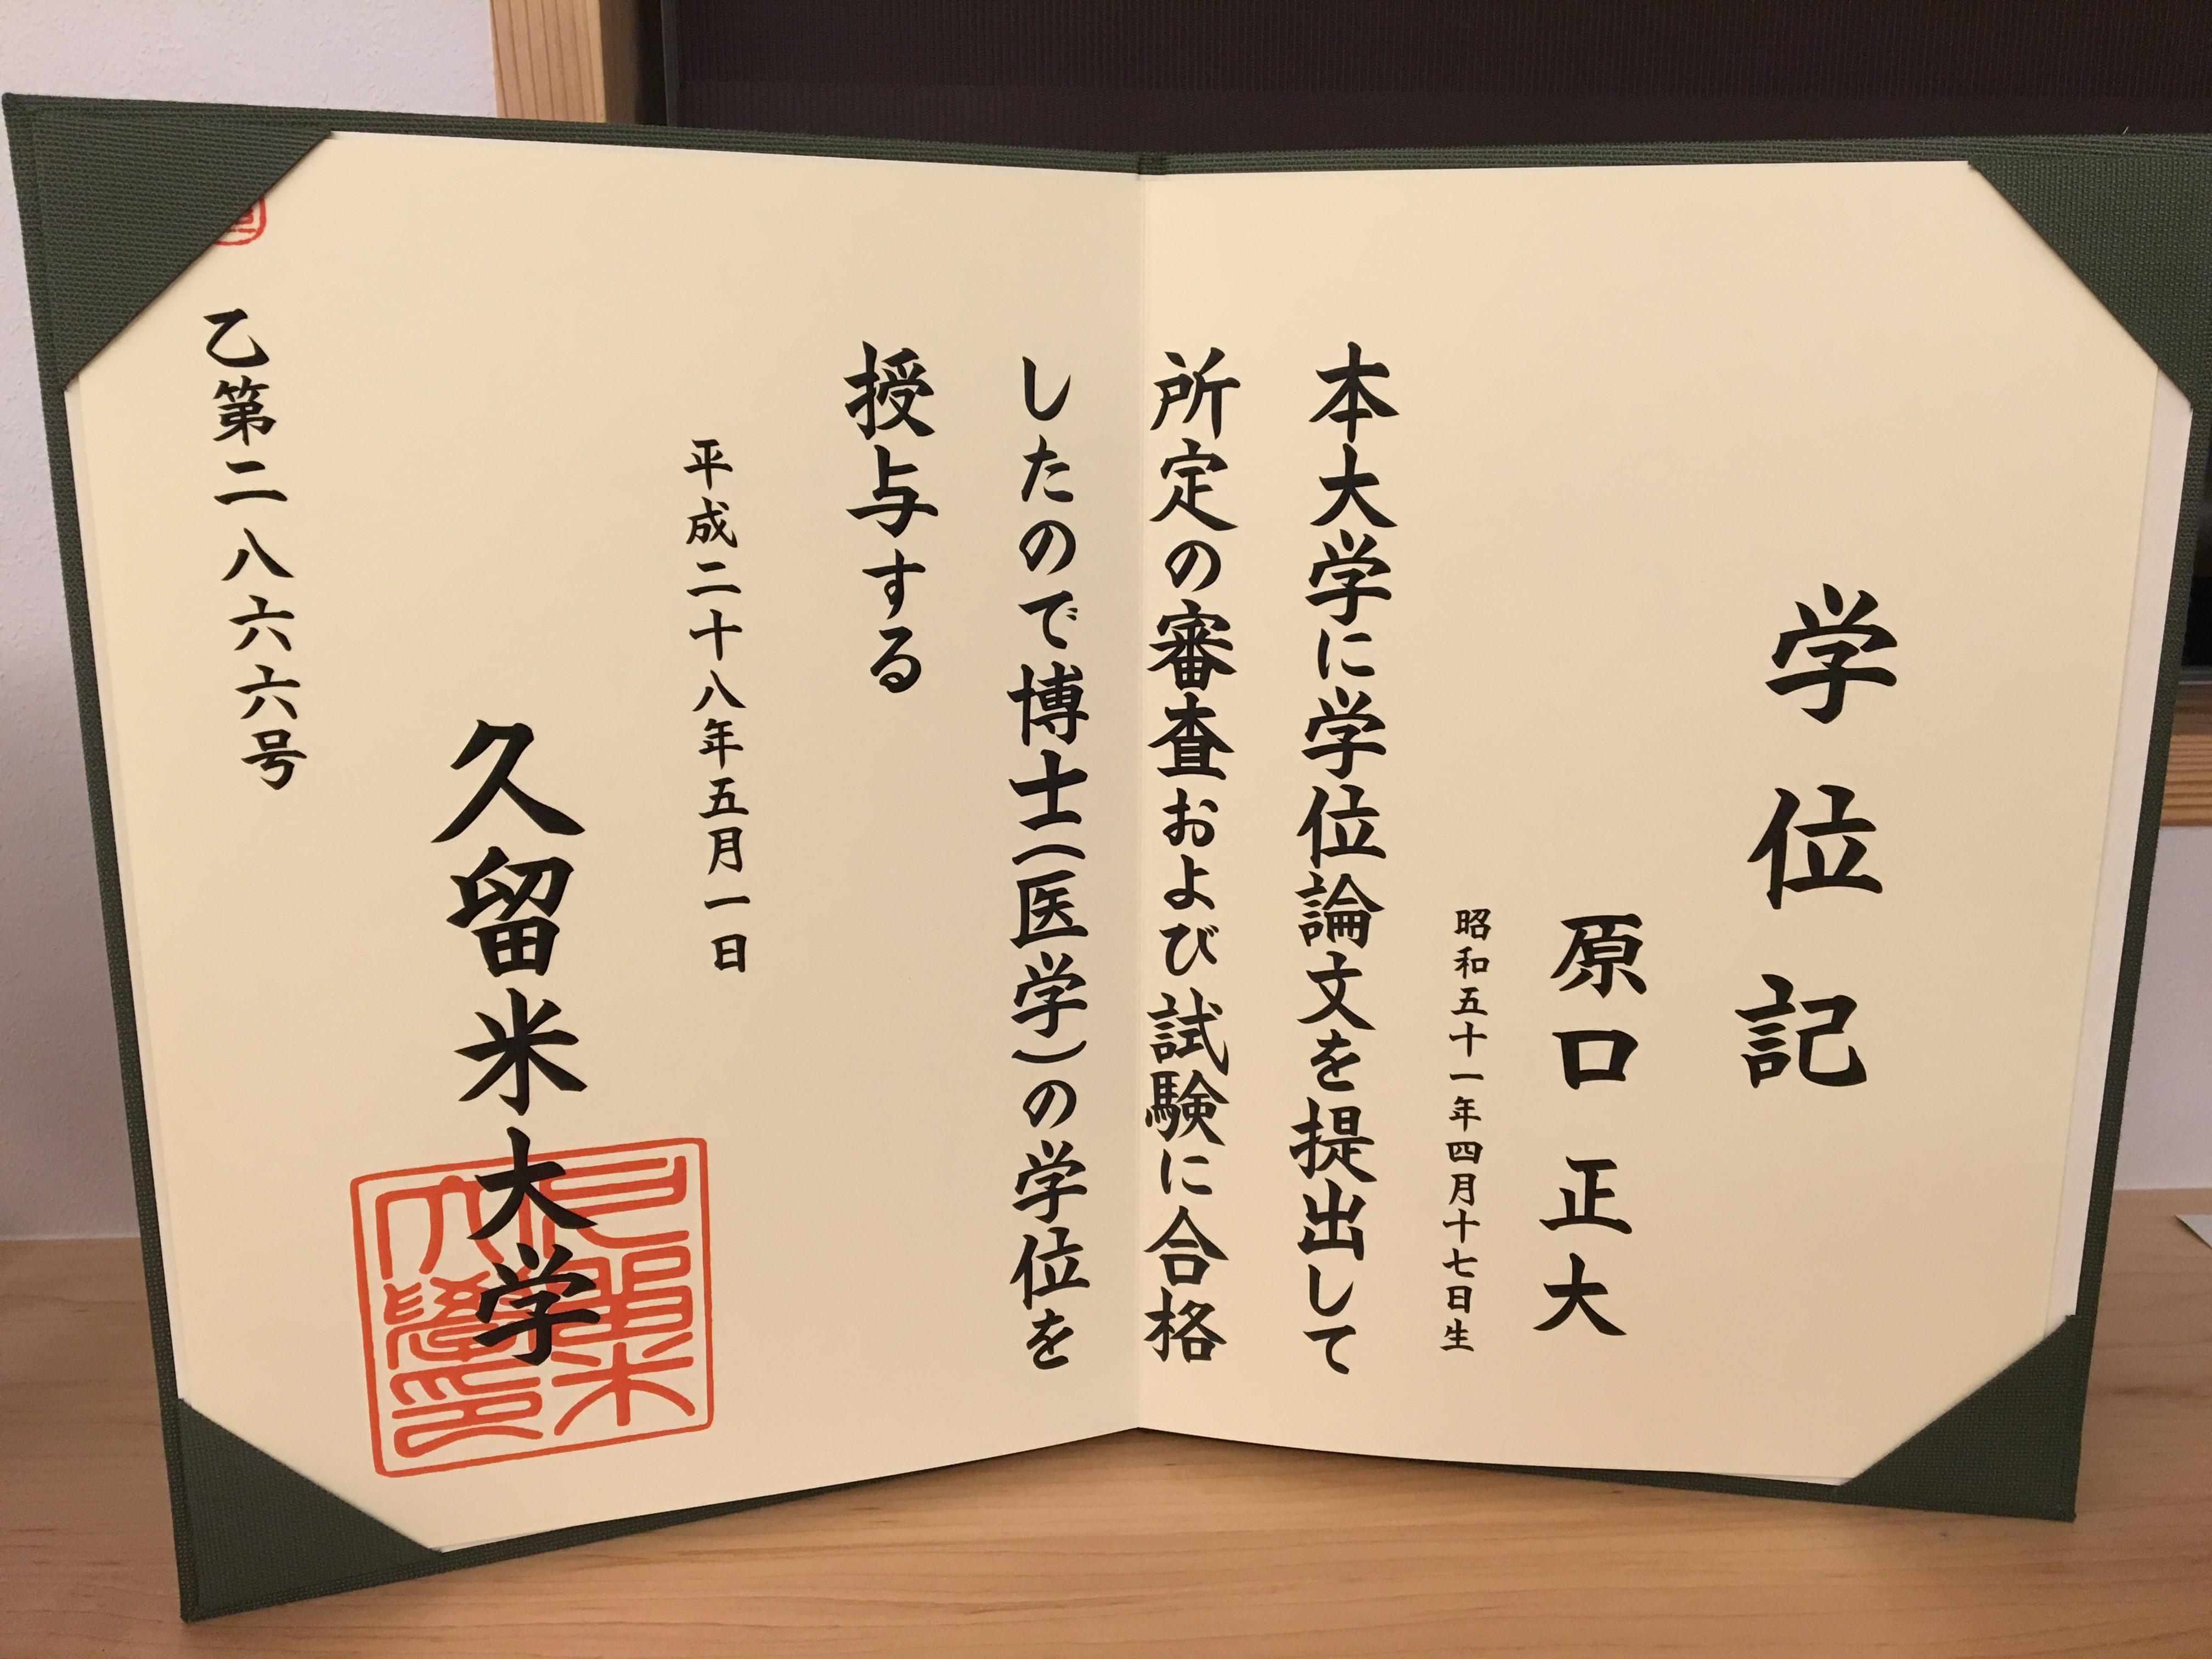 学位記
原口正大
昭和五十一年四月十七日生
本大学に学位論文を提出して
所定の審査および試験に合格
したので博士（医学）の学位を
授与する
平成二十八年五月一日
久留米大学
乙第二八六六号